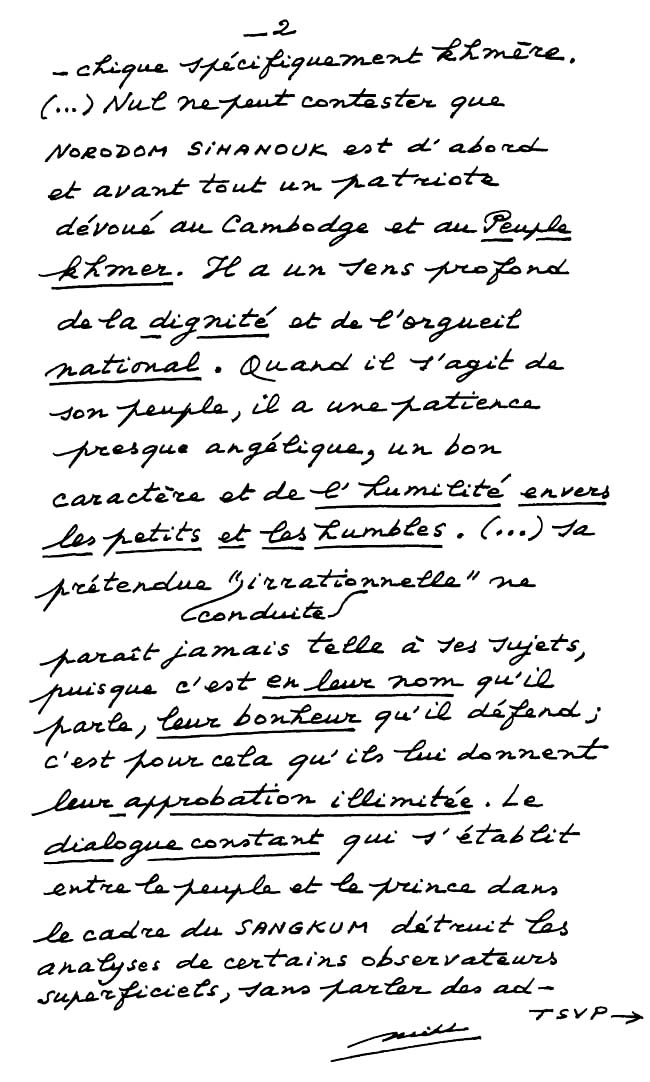 — 2
- chique spécifiquement khmère.
(...) Nul ne peut contester que
NORODOM SIHANOUK est d'abord
et avant tout un patriote
dévoué au Cambodge et au Peuple
khmer. Il a un sens profond
de la dignité et de l'orgueil
national. Quand il s'agit de
son peuple, il a une patience
presque angélique, un bon
caractère et de l'humilité envers
les petits et les humbles. (...) sa
prétendue "irrationnelle" ne
conduite
paraît jamais telle à ses sujets,
puisque c'est en leur nom qu'il
parle, leur bonheur qu'il défend ;
c'est pour cela qu'ils lui donnent
leur approbation illimitée. Le
dialogue constant qui s'établit
entre le peuple et le prince dans
le cadre du SANGKUM détruit les
analyses de certains observateurs
superficiels, sans parler des ad-
TSVP →